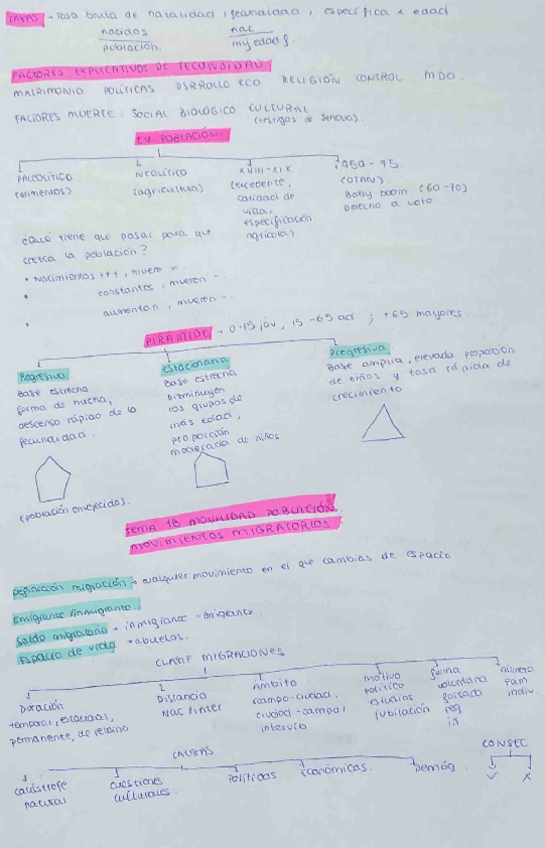 TASAS → tasa bruta de natalidad, fecundidad, específica x edad
nacidos
población.
nac
muj edad f.
FACTORES EXPLICATIVOS DE FECUNDIDAD
MATRIMONIO POLÍTICAS DSRROLLO ECO RELIGIÓN CONTROL MDO.
FACTORES MUERTE: SOCIAL BIOLÓGICO CULTURAL
(testigos de Jehová).
EV POBLACIÓN.
PALEOLÍTICO
(alimentos)
NEOLÍTICO
(agricultura)
XVIII-XIX
(excedente,
calidad de
vida,
especificación
agrícola)
1950-75
(OTAN).
Baby boom (60-70)
Derecho a voto
¿Qué tiene que pasar para que
crezca la población?
• Nacimientos +++, muere =.
• constantes, mueren -.
• aumentan, mueren -.
PIRAMIDE → 0-15 jóv, 15-65 ad ; +65 mayores.
Regresiva
Base estrecha
forma de hucha,
descenso rápido de la
fecundidad.
(población envejecida).
estacionaria
Base estrecha
Disminuyen
los grupos de
más edad,
proporción
moderada de niños
Progresiva
Base amplia, elevada proporción
de niños y tasa rápida de
crecimiento
TEMA 18 MOVILIDAD POBLACIÓN.
MOVIMIENTOS MIGRATORIOS
Definición migración → cualquier movimiento en el que cambias de espacio
Emigrante/inmigrante.
Saldo migratorio → inmigrante - emigrante
Espacio de vida → abuelos.
CLASIF MIGRACIONES
Duración
temporal, estacional,
permanente, de retorno
Distancia
Nac/inter
Ámbito
campo-ciudad,
ciudad-campo,
motivo
político
estudios
jubilación
forma
voluntaria
forzado
número
fam
indiv.
CAUSAS
catástrofe
natural
cuestiones
culturales.
Políticas
Económicas.
Demóg.
CONSEC
✓ X